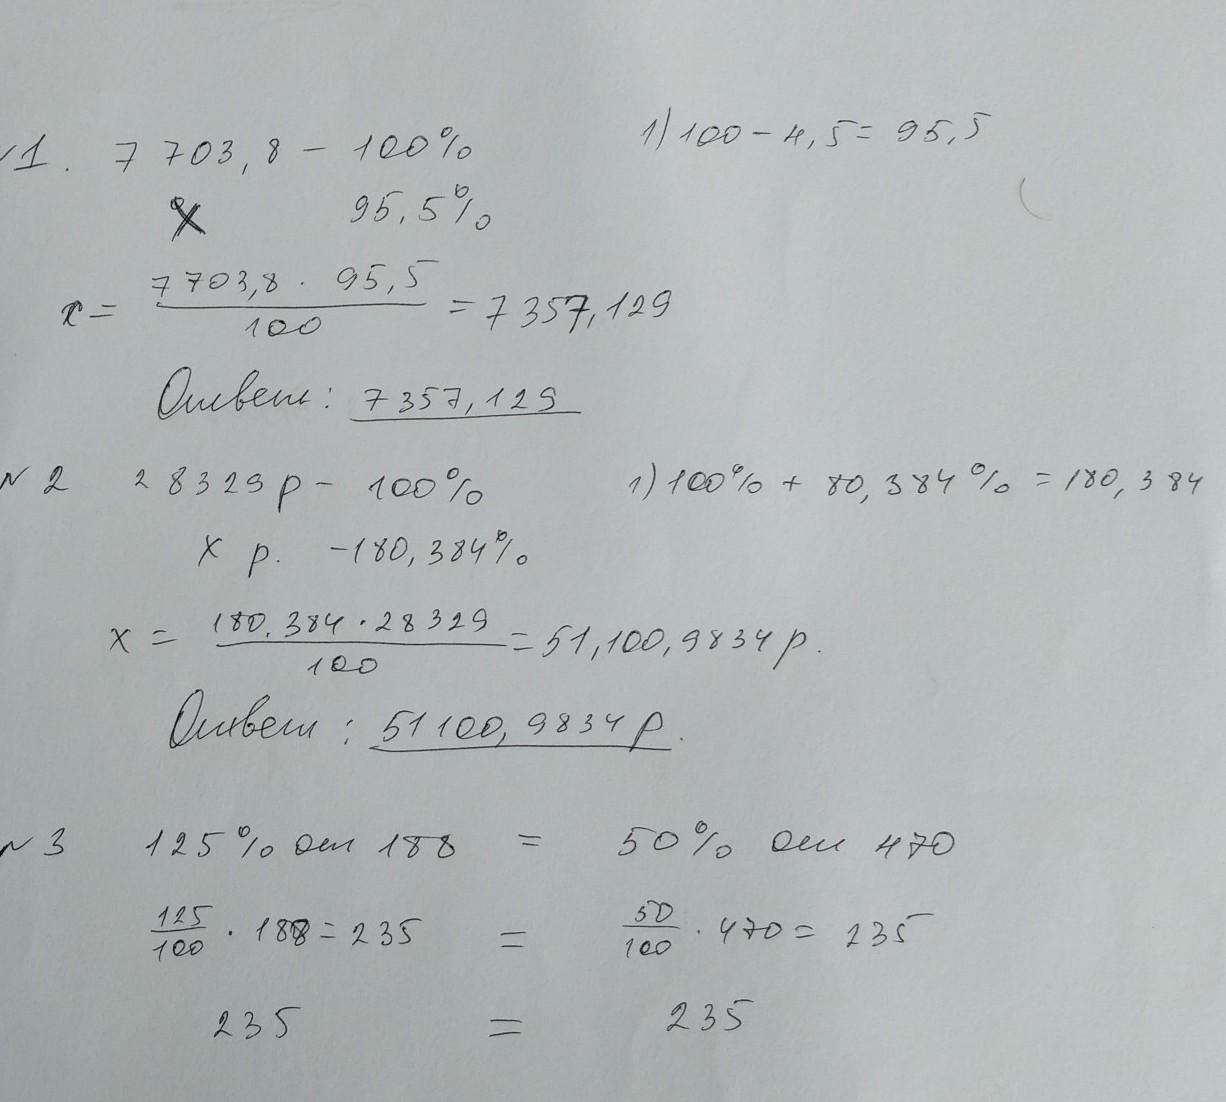 №1. 7 703,8 - 100%
1) 100 - 4,5 = 95,5
x 95,5%
x = 7 703,8 · 95,5 / 100 = 7 357,129
Ответ: 7 357,129
№ 2 28329 р - 100%
1) 100% + 80,384% = 180,384
x р. - 180,384%
x = 180.384 · 28329 / 100 = 51,100,9834 р.
Ответ: 51100,9834 р.
№ 3 125% от 188 = 50% от 470
125/100 · 188 = 235 = 50/100 · 470 = 235
235 = 235